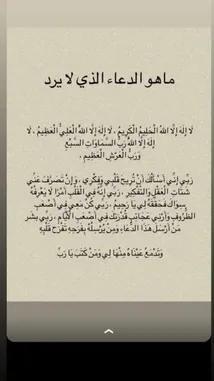 ماهو الدعاء الذي لا يرد
لَا إِلَهَ إِلَّا اللهُ الْحَلِيمُ الْكَرِيمُ ، لَا إِلَهَ إِلَّا اللهُ الْعَلِيُّ الْعَظِيمُ ، لَا
إِلَهَ إِلَّا اللهُ رَبُّ السَّمَاوَاتِ السَّبْعِ
وَرَبُّ الْعَرْشِ الْعَظِيمِ .
رَبِّي إِنِّي أَسْأَلُكَ أَنْ تُرِيحَ قَلْبِي وَفِكْرِي ، وَإِنْ تَصْرِفَ عَنِّي
شَتَاتَ الْعَقْلِ وَالتَّفْكِيرِ ، رَبِّي إِنَّهُ فِي الْقَلْبِ أَمْرًا لَا يَعْرِفُهُ
سِوَاكَ فَحَقِّقْهُ لِي يَا رَحِيمُ ، رَبِّي كُنْ مَعِي فِي أَصْعَبِ
الظُّرُوفِ وَأَرِنِي عَجَائِبَ قُدْرَتِكَ فِي أَصْعَبِ الْأَيَّامِ ، رَبِّي بَشِّرْ
مَنْ أَرْسَلَ هَذَا الدُّعَاءَ وَمَنْ يُرْسِلُهُ بِفَرْحَةٍ تَفْرَحُ قَلْبَهُ
وَتَدْمَعُ عَيْنَاهُ مِنْهَا لِي وَمَنْ كَتَبَ يَا رَبِّ